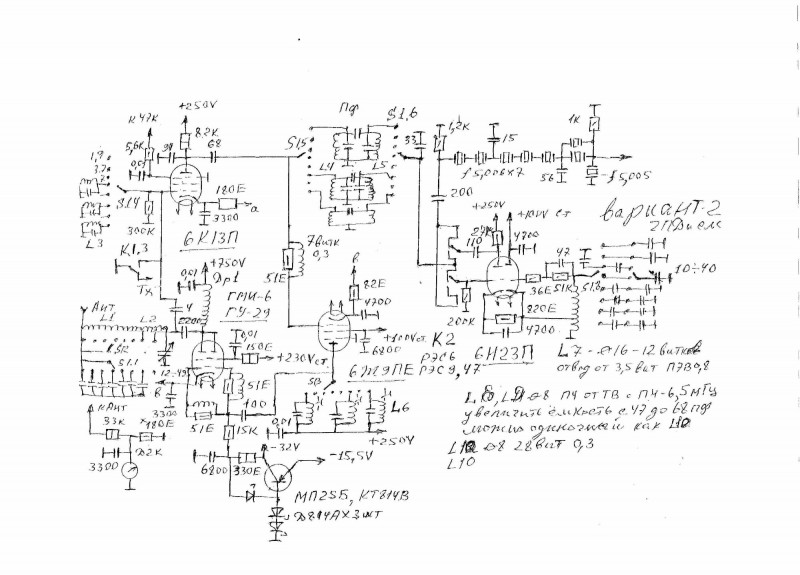 +250V
К 47К
8,2К
5,6К
0,01
68
S1,5
Пф
S1,6
33
1,2К
15
1К
1,9
3,7
S1.4
L3
300К
180Е
а
3300
6К13П
К1,3
Тх
L4
L5
200
f 5,006х7
56
f 5,005
+250V
110
4700
вариант-2
47
10÷40
36Е
51К
S1.8
200К
820Е
4700
6Н23П
7витк
0,3
51Е
+750V
0,01
Др1
ГМИ-6
ГУ-29
82Е
4700
6800
+100Vст
К2
РЭС6
РЭС9,47
6Ж9ПЕ
Ант
L1
L2
4
2200
S1.1
12-495
В
3300
0,01
150Е
+230Vст
51Е
51Е
100
15К
S3
L6
0,01
+250V
кАнт
33К
180Е
3300
Д2К
6800
330Е
-32V
-15,5V
МП25Б, КТ814В
Д814АХ3шт
L7 - ⌀16-12 витков
отвод от 3,5 вит ПЭВ 0,8
⌀8 ПЧ от ТВ с ПЧ-6,5мГц
увеличить ёмкость с 47 до 68 пф
можно одиночный как L10
⌀8 28 вит 0,3
L10